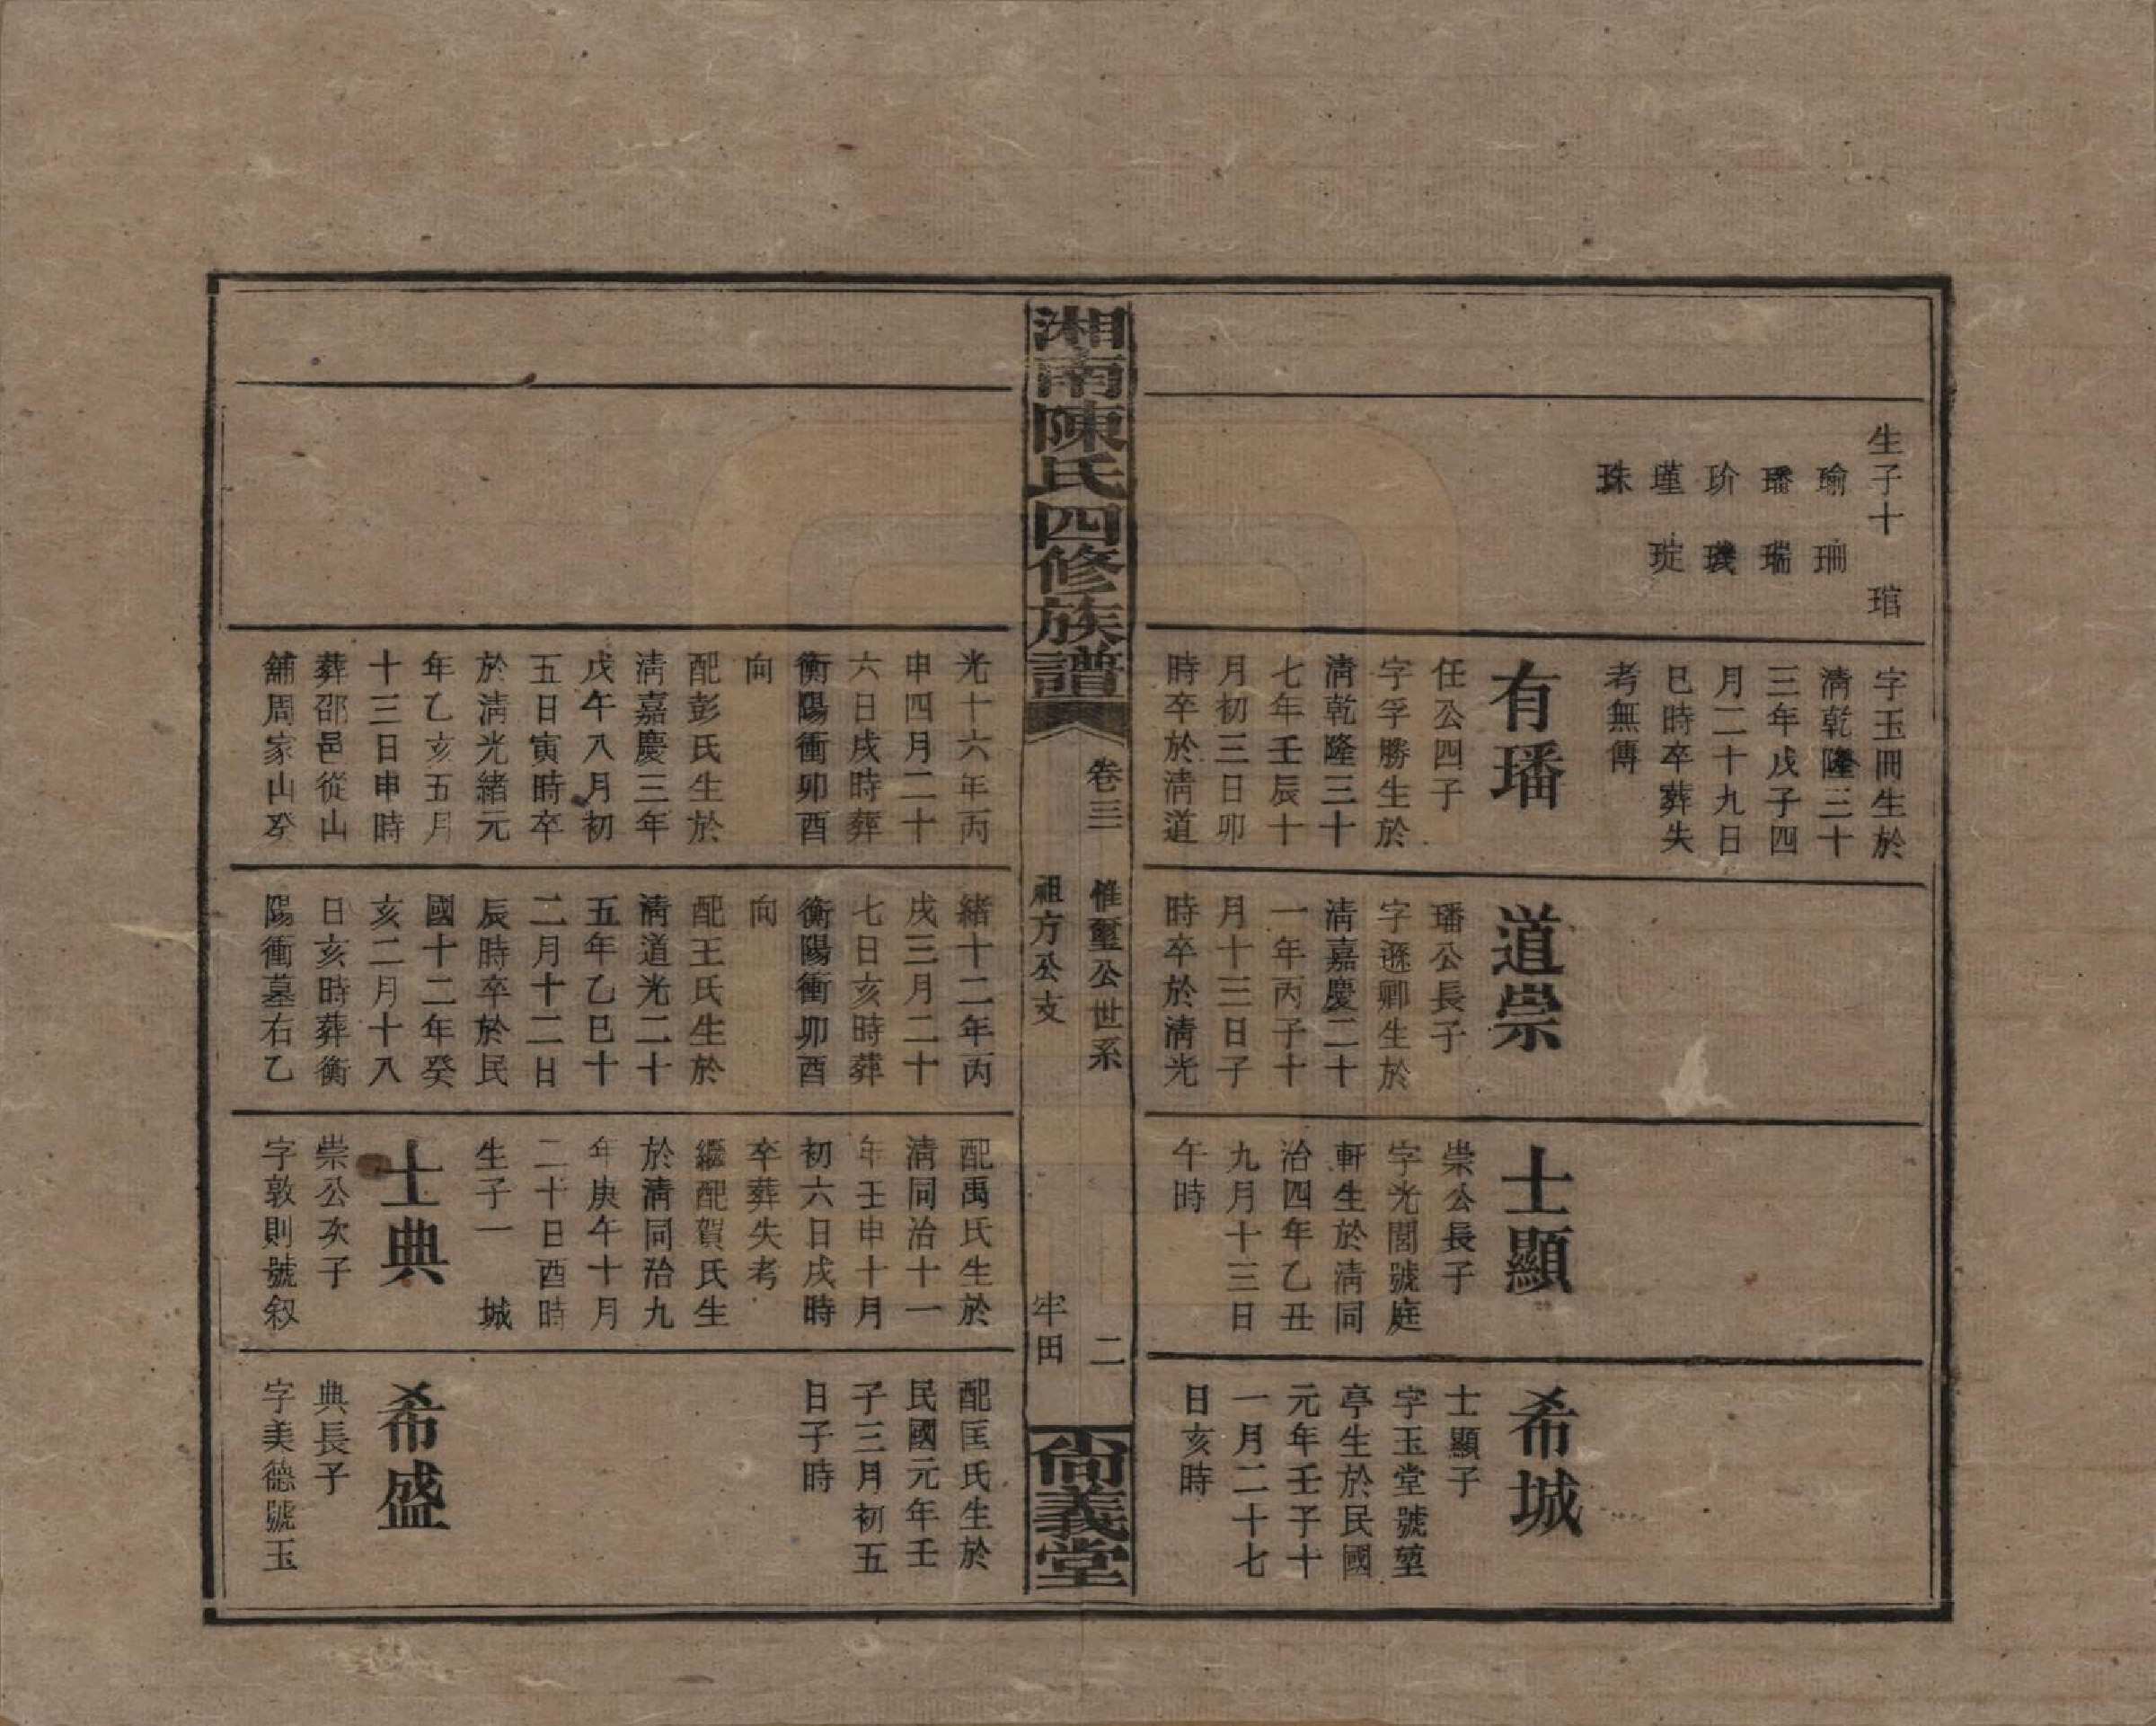 生子十 琯
瑜 珊
璠 瑞
玠 璣
瑾 琔
珠
字玉冊生於
清乾隆三十
三年戊子四
月二十九日
巳時卒葬失
考無傳
有璠
任公四子
字孚勝生於
清乾隆三十
七年壬辰十
月初三日卯
時卒於清道
道崇
璠公長子
字遜卿生於
清嘉慶二十
一年丙子十
月十三日子
時卒於清光
士顯
崇公長子
字光閭號庭
軒生於清同
治四年乙丑
九月十三日
午時
希城
士顯子
字玉堂號堃
亭生於民國
元年壬子十
一月二十七
日亥時
湘南陳氏四修族譜
卷三 惟璽公世系 二
祖方公支 牢田
尚義堂
光十六年丙
申四月二十
六日戌時葬
衡陽衝卯酉
向
配彭氏生於
清嘉慶三年
戊午八月初
五日寅時卒
於清光緒元
年乙亥五月
十三日申時
葬邵邑從山
舖周家山癸
緒十二年丙
戌三月二十
七日亥時葬
衡陽衝卯酉
向
配王氏生於
清道光二十
五年乙巳十
二月十二日
辰時卒於民
國十二年癸
亥二月十八
日亥時葬衡
陽衝墓右乙
配禹氏生於
清同治十一
年壬申十月
初六日戌時
卒葬失考
繼配賀氏生
於清同治九
年庚午十月
二十日酉時
生子一 城
士典
崇公次子
字敦則號叙
配匡氏生於
民國元年壬
子三月初五
日子時
希盛
典長子
字美德號玉